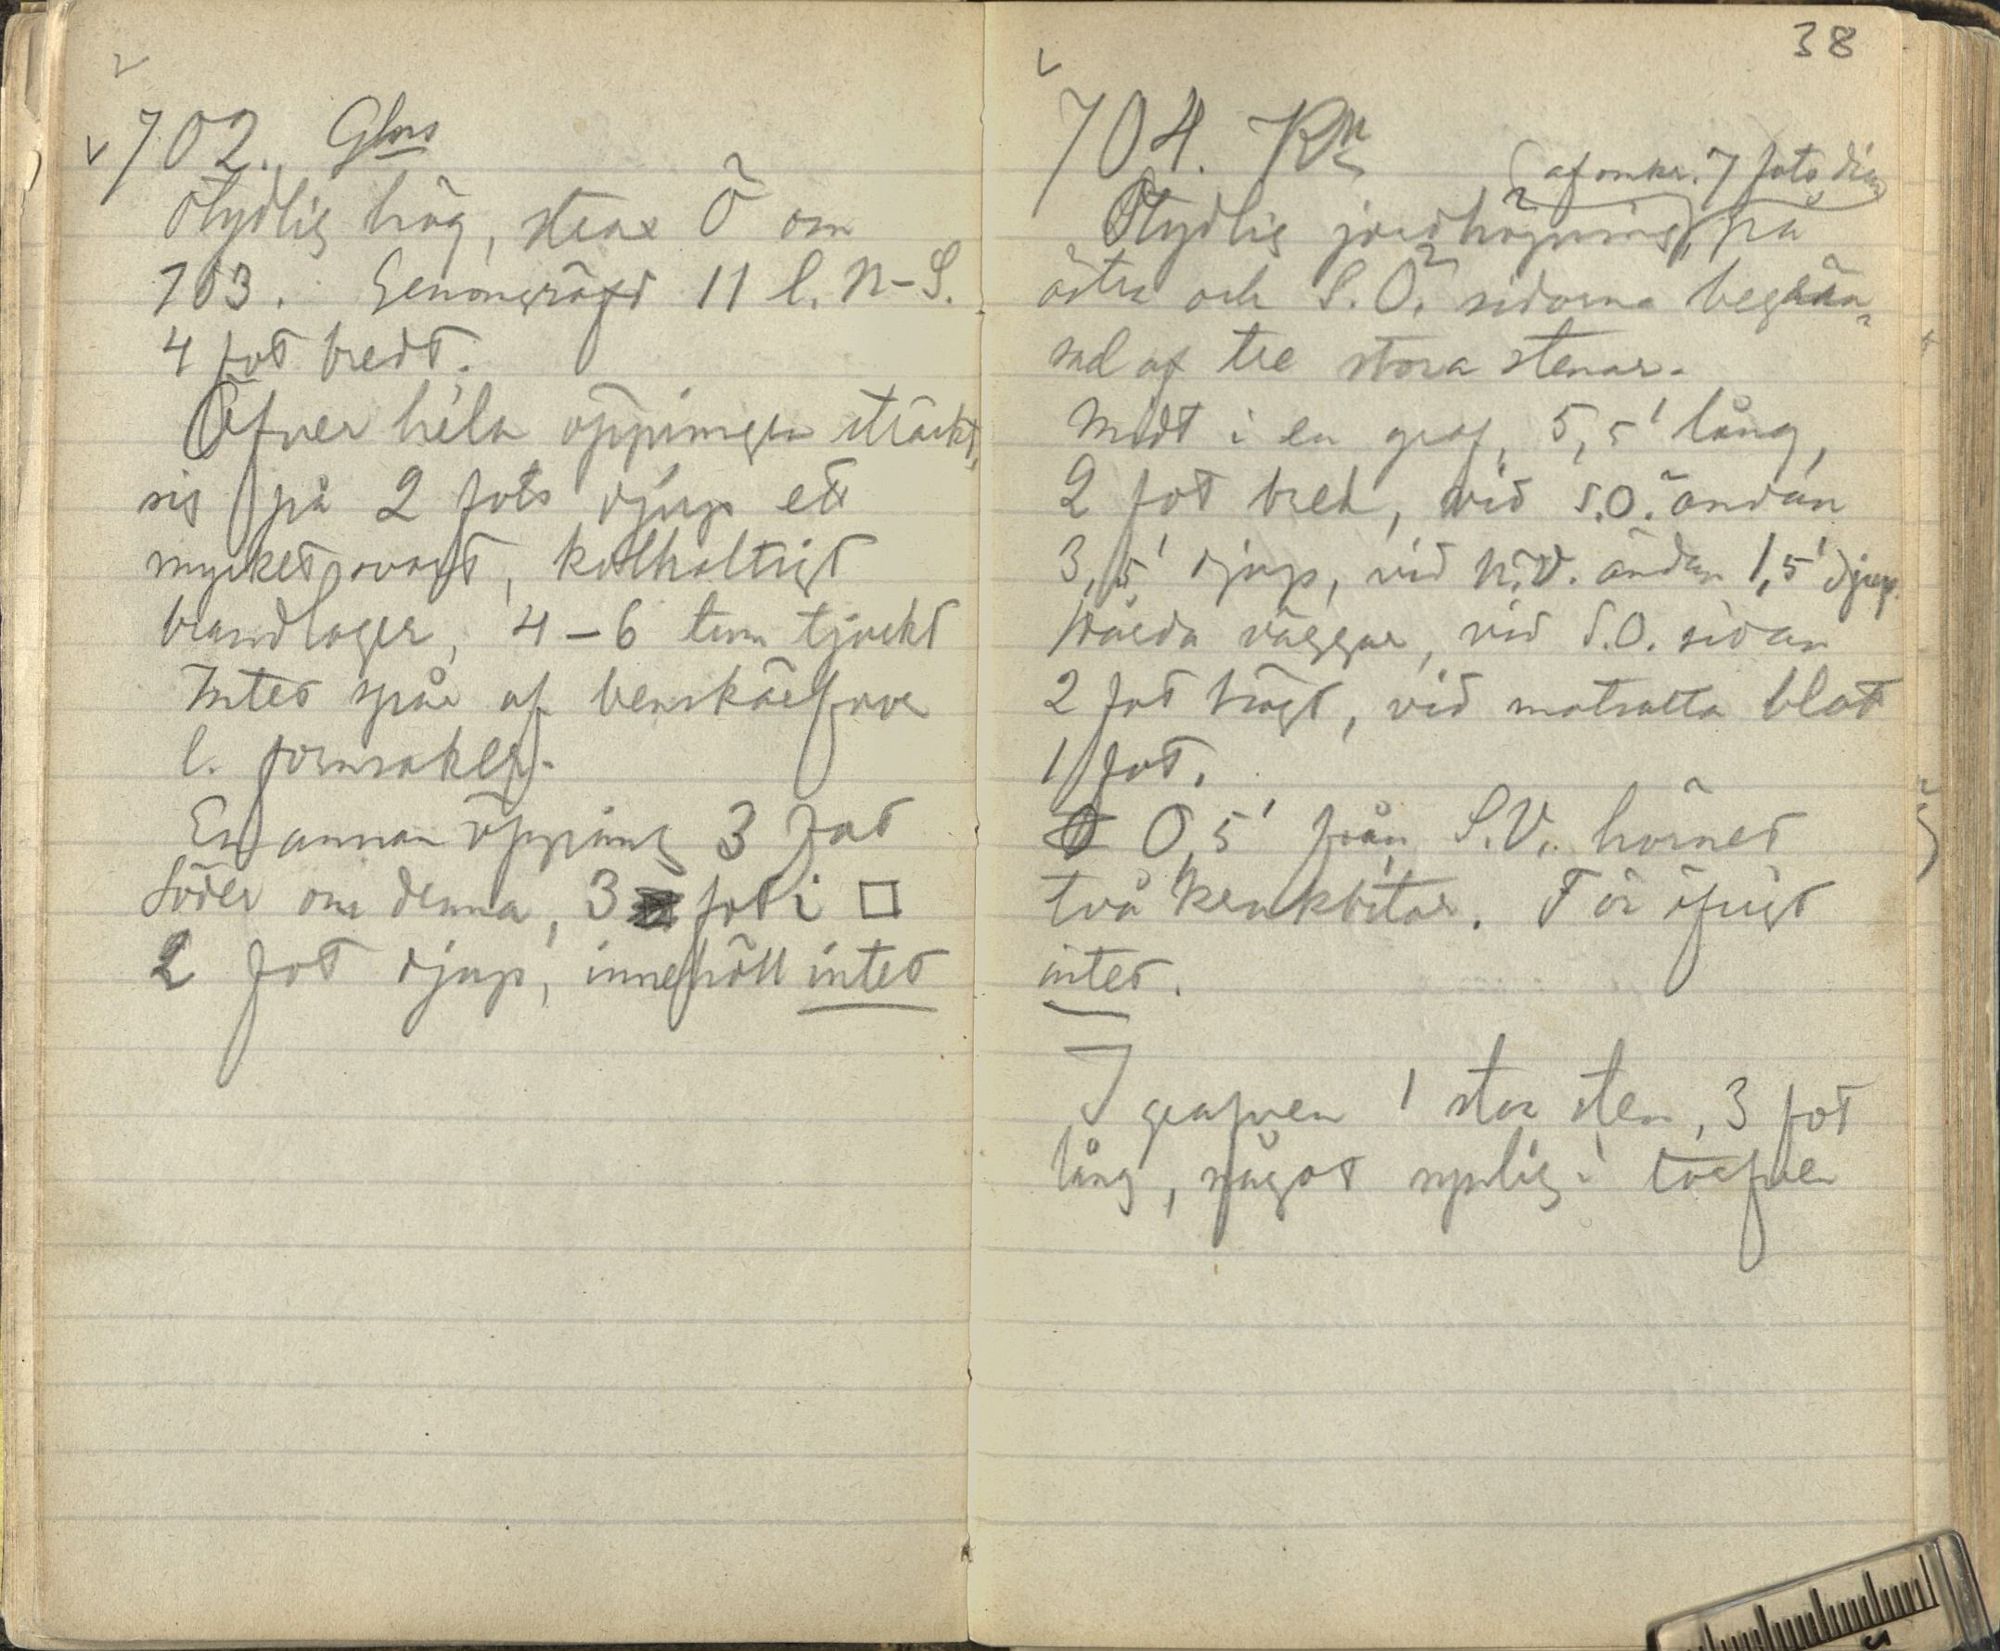 702. Glms
Otydlig hög, strax Ö om
703. Genomgräfd 11 l. N–S.
4 fot bredt.
Öfver hela öppningen sträckt
sig på 2 fots djup ett
mycket svart, kolhaltigt
brandlager, 4–6 tum tjockt
Intet spår af benskärfvor
l. fornsaker.
En annan öppning 3 fot
söder om denna, 3 fot i □
2 fot djup, innehöll intet
38
704. Rm
af omkr. 7 fots diam
Otydlig jordhöjning, på
östra och S.Ö. sidorna begrän-
sad af tre stora stenar.
Midt i en graf, 5,5' lång,
2 fot bred, vid S.O. ändan
3,5' djup, vid N.V. ändan 1,5' djup.
Hårda väggar, vid S.O. sidan
2 fot högt, vid motsatta blot
1 fot.
0,5' från S.V. hörnet
två krukbitar. För öfrigt
intet.
I grafven 1 stor sten, 3 fot
lång, något